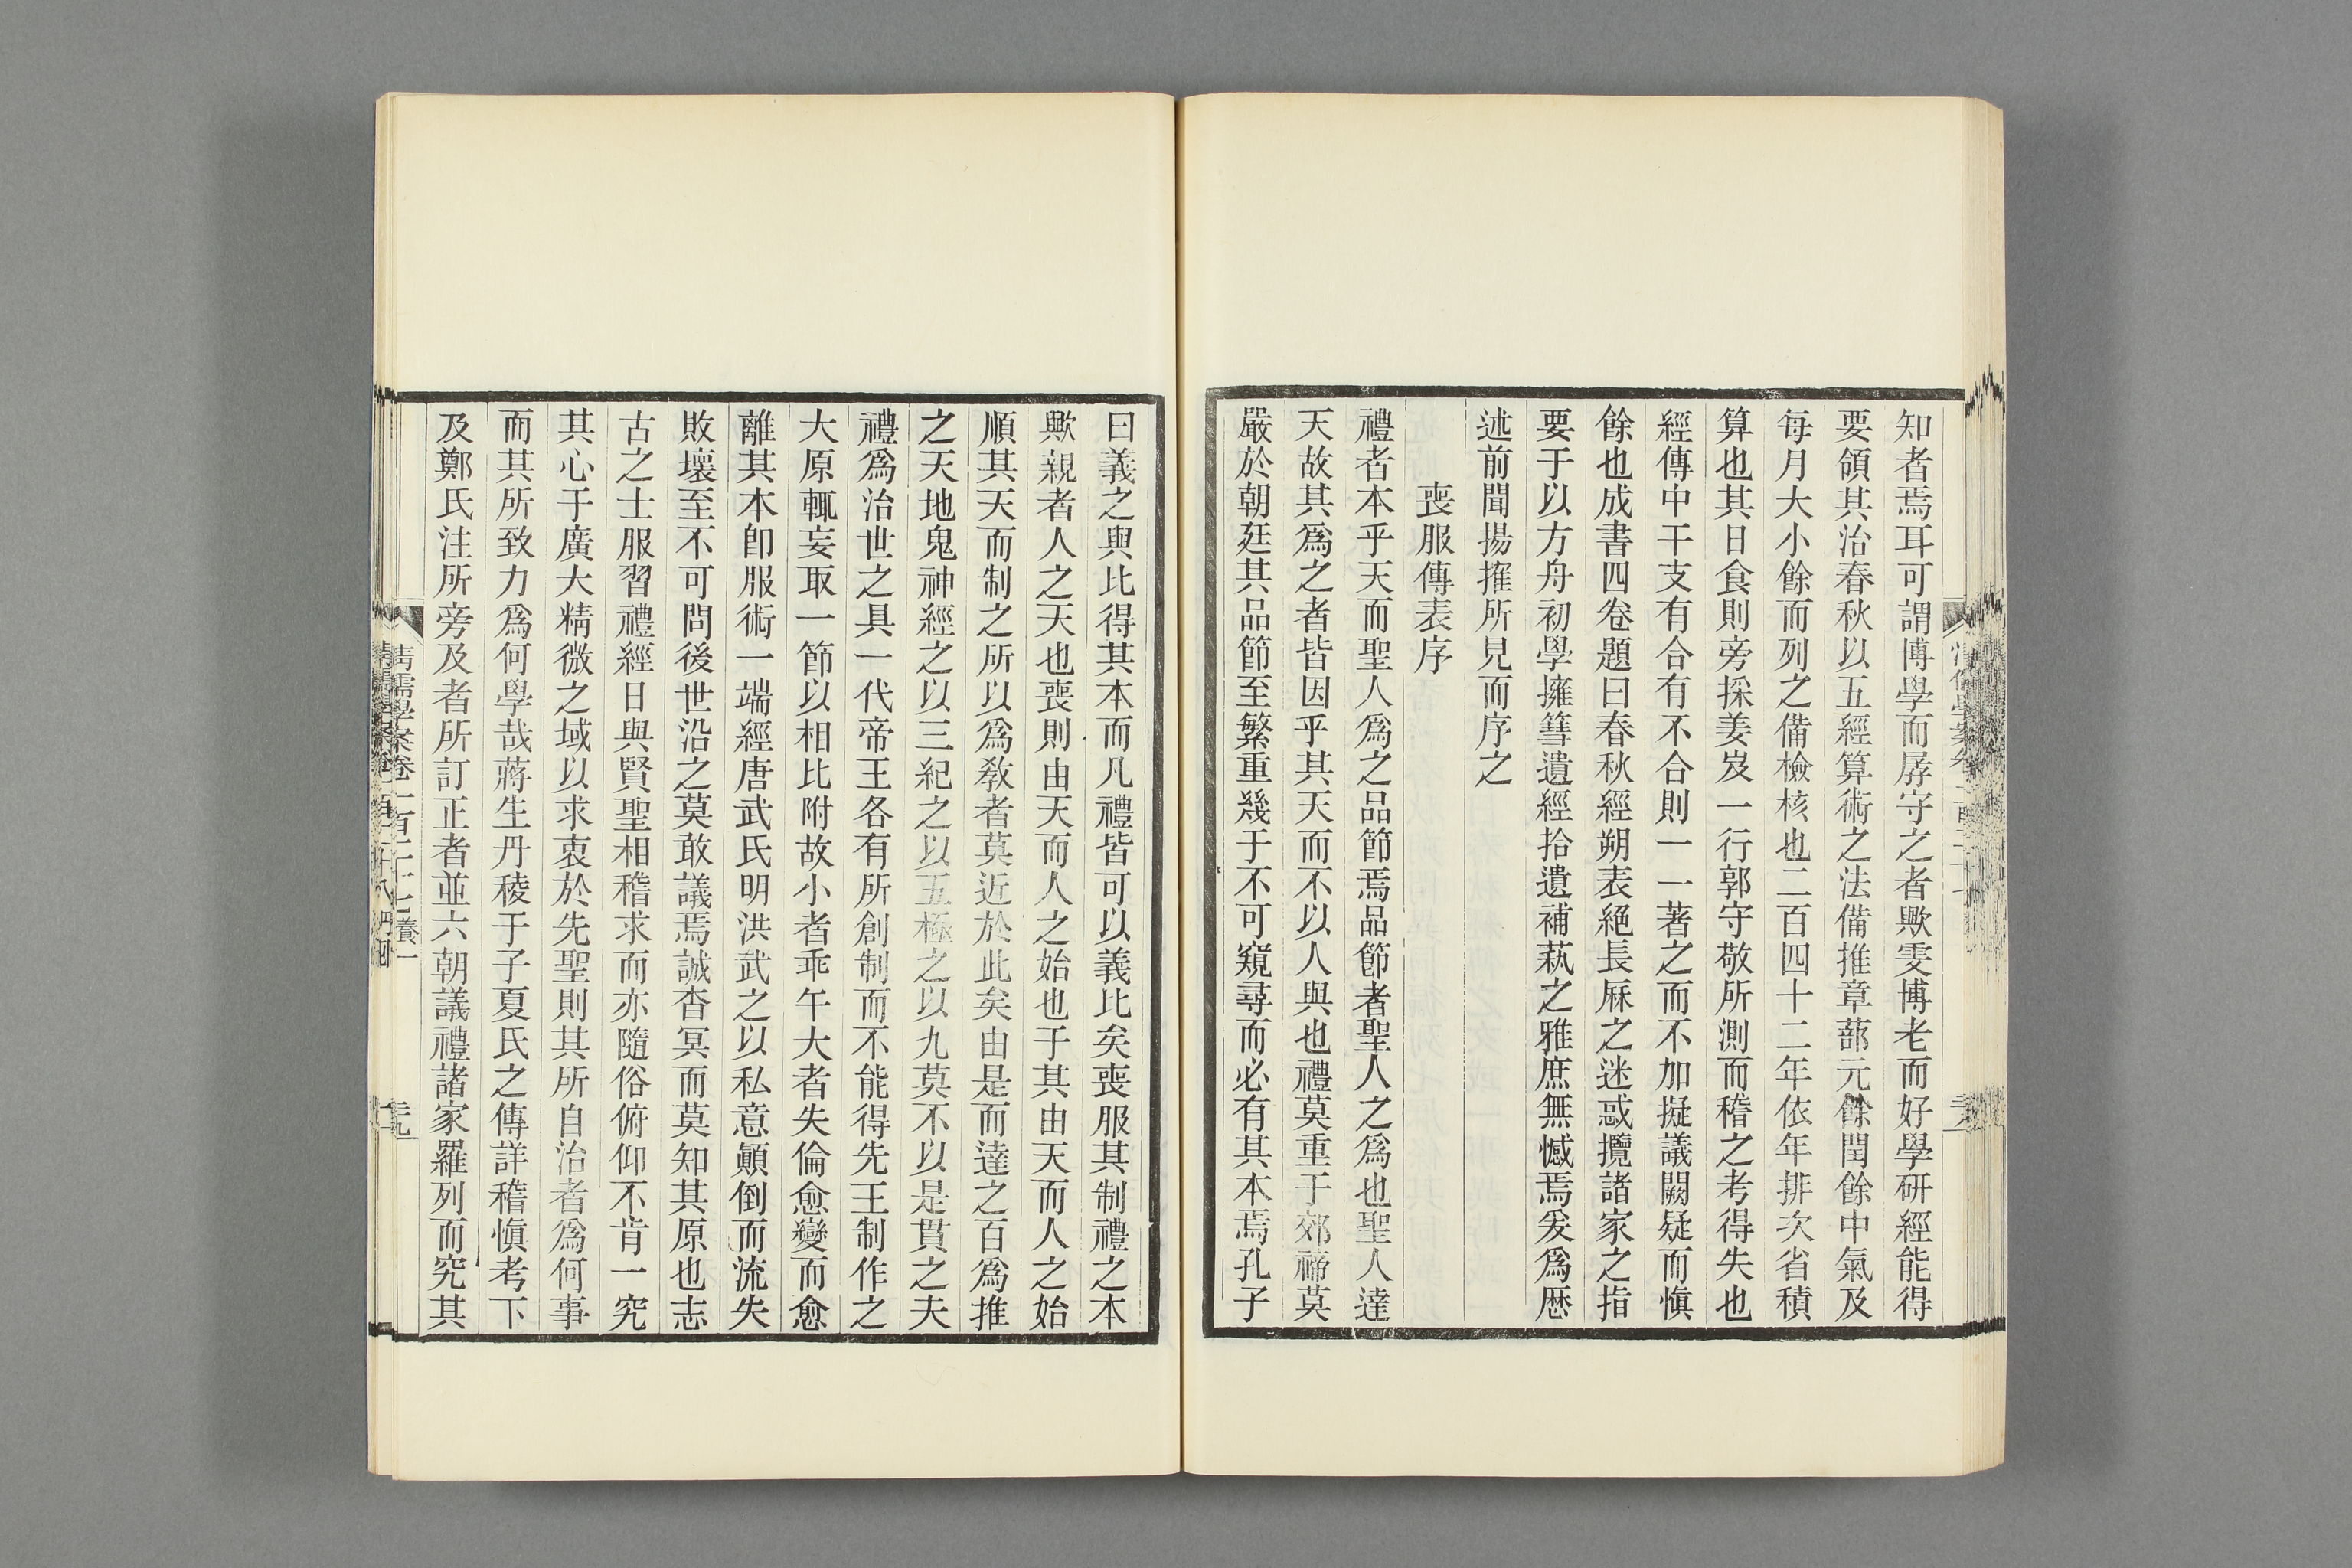 知者焉耳可謂博學而孱守之者歟雯博老而好學研經能得
要領其治春秋以五經算術之法備推章蔀元餘閏餘中氣及
每月大小餘而列之備檢核也二百四十二年依年排次省積
算也其日食則旁採姜岌一行郭守敬所測而稽之考得失也
經傳中干支有合有不合則一一著之而不加擬議闕疑而愼
餘也成書四卷題曰春秋經朔表絕長厤之迷惑攬諸家之指
要于以方舟初學擁篲遺經拾遺補蓺之雅庶無憾焉爰爲歷
述前聞揚搉所見而序之
喪服傳表序
禮者本乎天而聖人爲之品節焉品節者聖人之爲也聖人達
天故其爲之者皆因乎其天而不以人與也禮莫重于郊禘莫
嚴於朝廷其品節至繁重幾于不可窺尋而必有其本焉孔子
曰義之與比得其本而凡禮皆可以義比矣喪服其制禮之本
歟親者人之天也喪則由天而人之始也于其由天而人之始
順其天而制之所以爲敎者莫近於此矣由是而達之百爲推
之天地鬼神經之以三紀之以五極之以九莫不以是貫之夫
禮爲治世之具一代帝王各有所創制而不能得先王制作之
大原輒妄取一節以相比附故小者乖午大者失倫愈變而愈
離其本卽服術一端經唐武氏明洪武之以私意顚倒而流失
敗壞至不可問後世沿之莫敢議焉誠杳冥而莫知其原也志
古之士服習禮經日與賢聖相稽求而亦隨俗俯仰不肯一究
其心于廣大精微之域以求衷於先聖則其所自治者爲何事
而其所致力爲何學哉蔣生丹稜于子夏氏之傳詳稽愼考下
及鄭氏注所旁及者所訂正者並六朝議禮諸家羅列而究其
清儒學案卷一百二十七養一